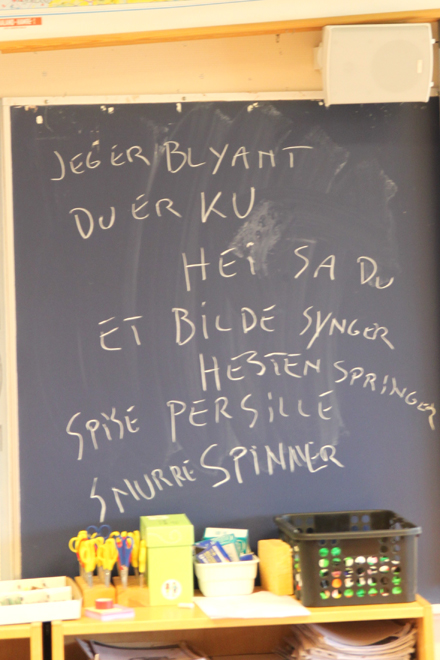 JEG ER BLYANT
DU ER KU
HEi SA DU
ET BiLDE SYNGER
HESTEN SPRiNGER
SPiSE PERSiLLE
SNURRE SPiNNER